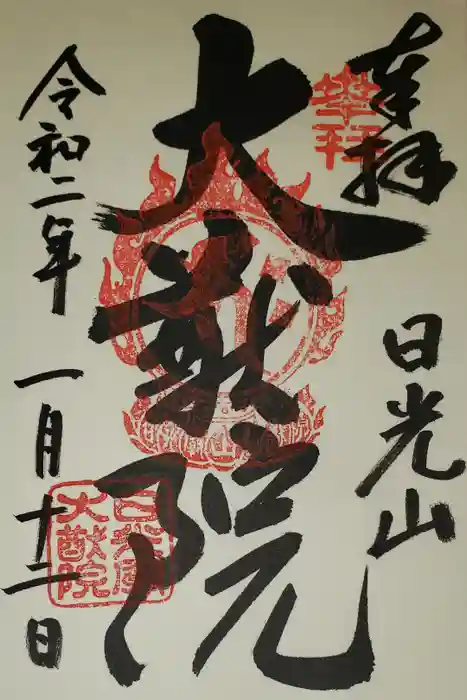 奉拝
日光山
大猷院
令和二年
一月十二日
奉拝
日光山
大猷院